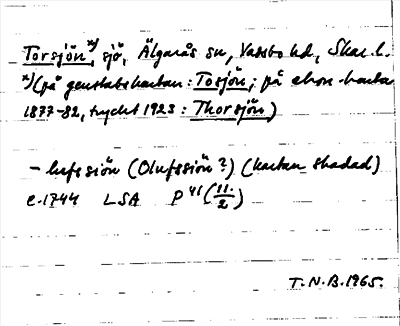 Torsjön x), sjö, Älgarås sn, Vadsbo hd, Skar. l.
x) (på genstabskartan: Tosjön; på ekon. karta
1877-82, tryckt 1923: Thorsjön)
- lufssiön (Olufssiön?) (kartan skadad)
c. 1744 LSA P 41 (11/2)
T.N.B. 1965.